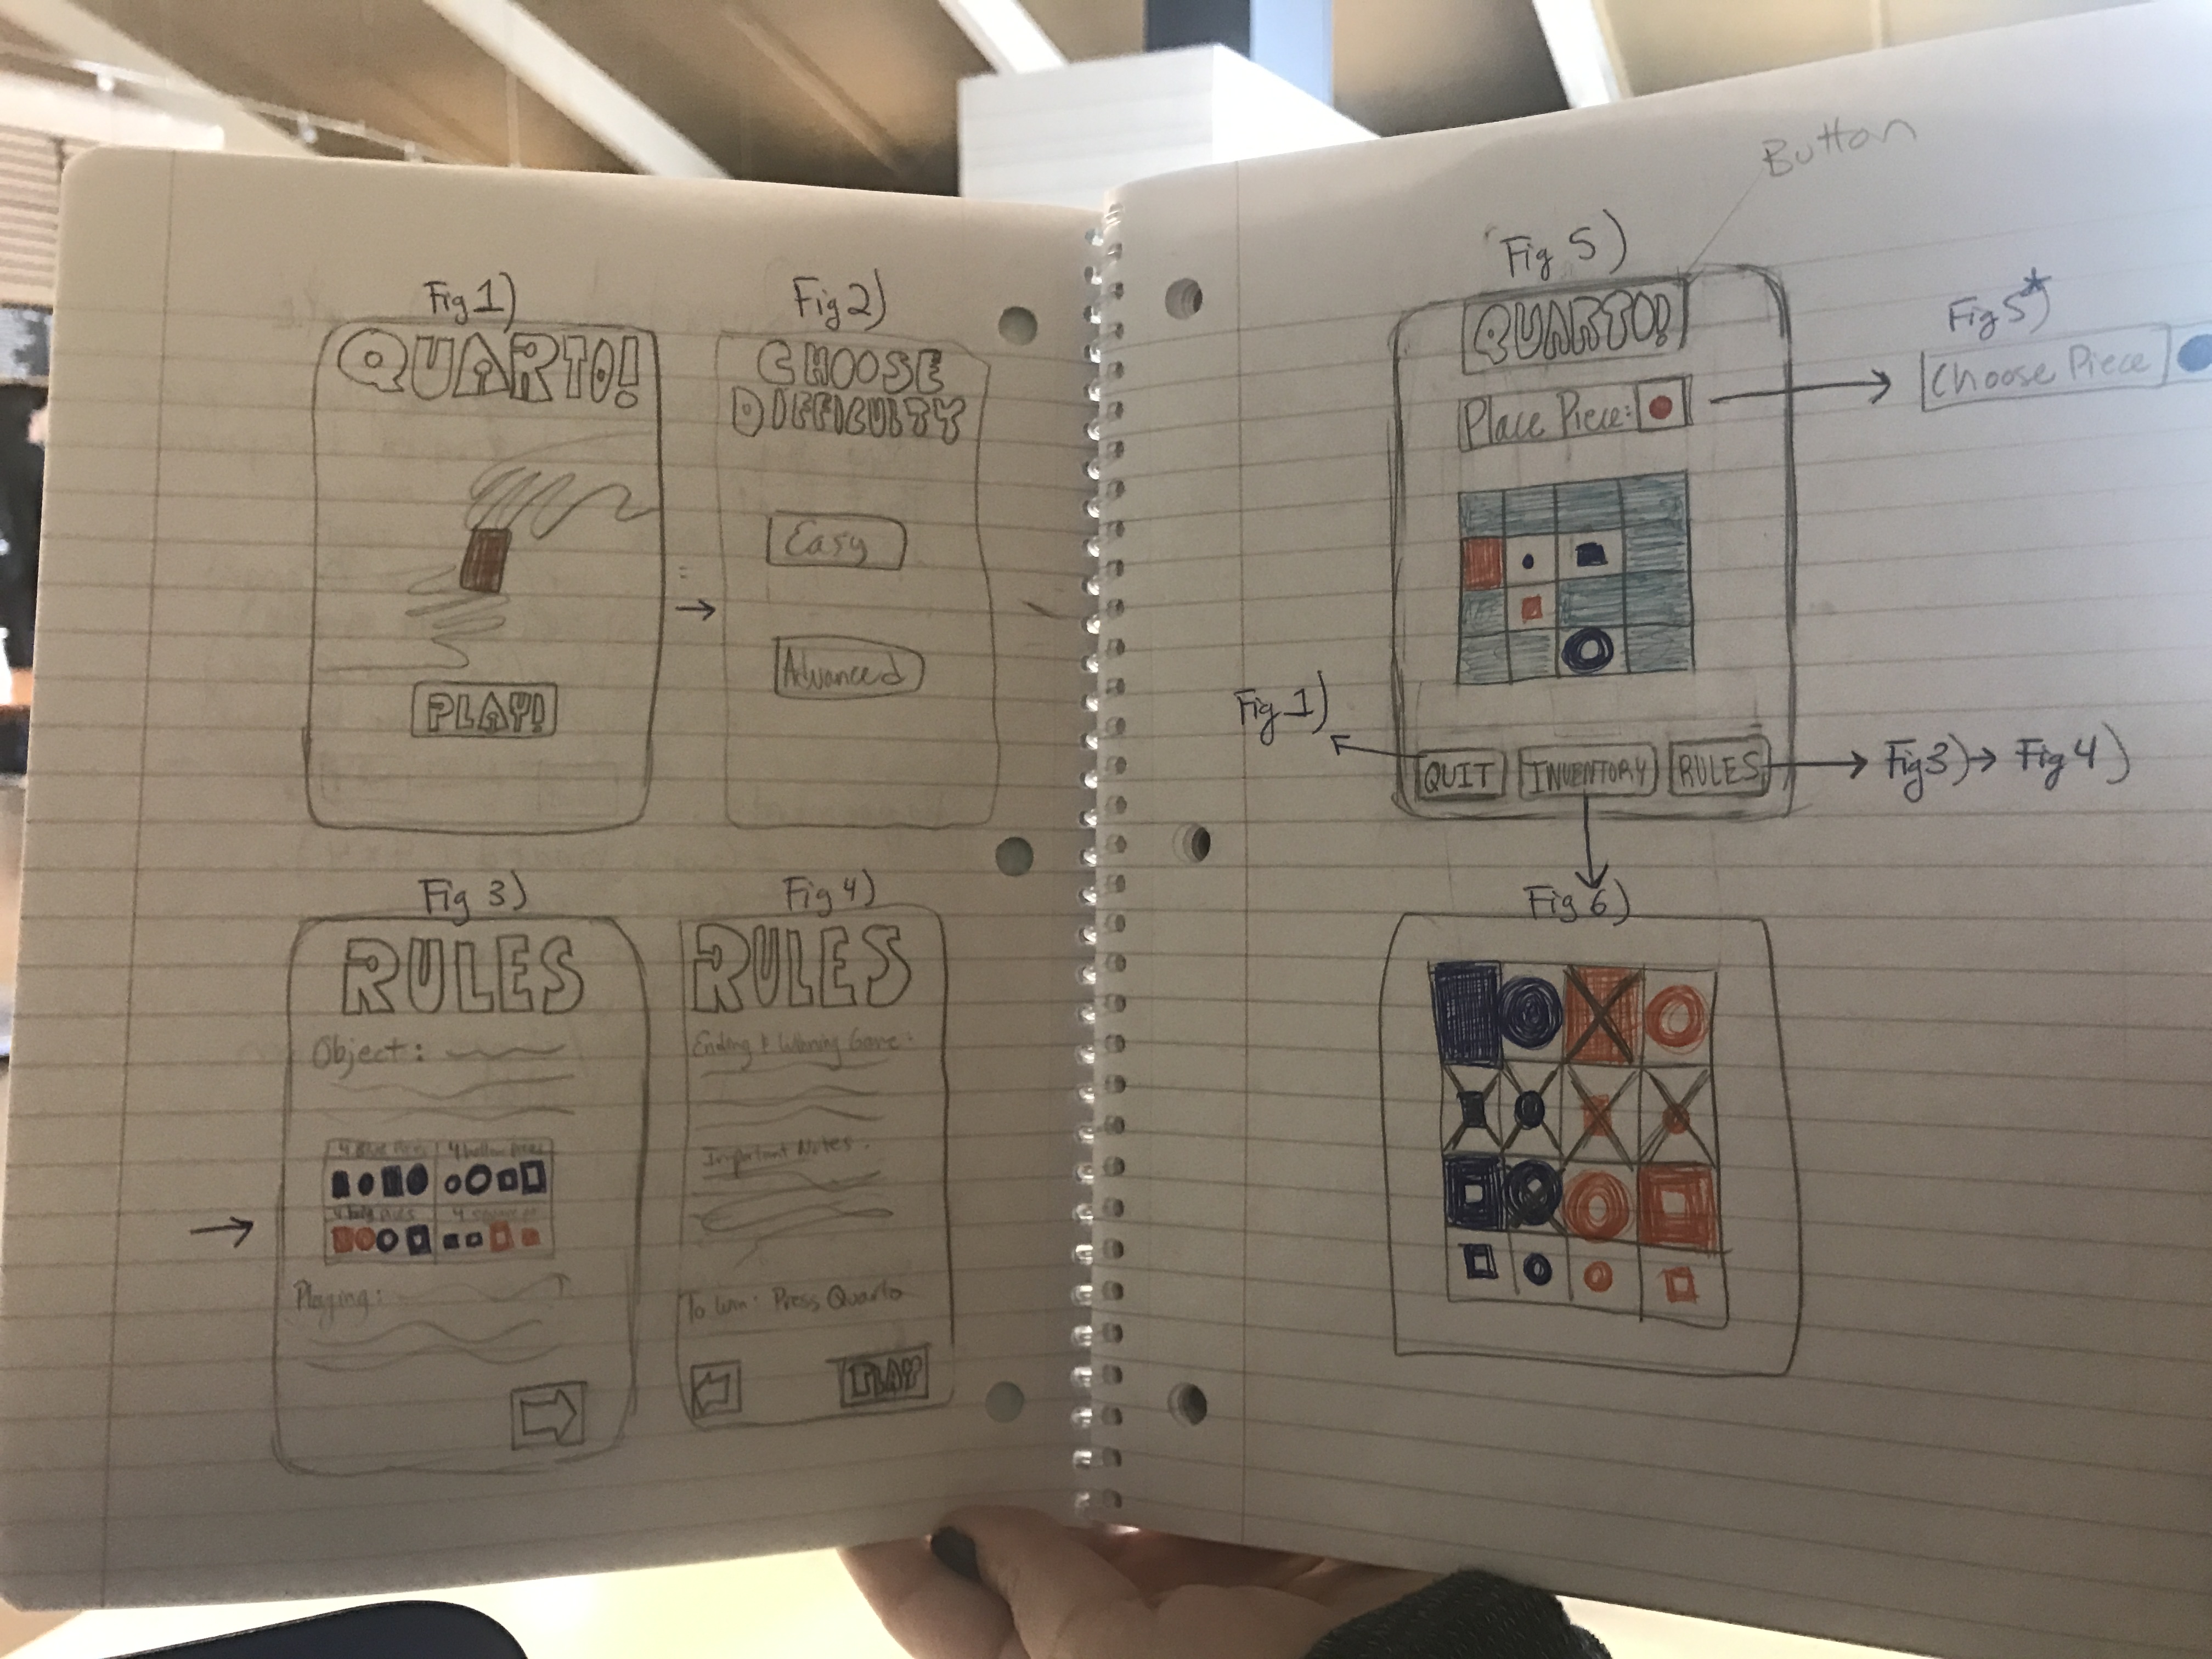 Fig 1)
QUARTO!
PLAY!
Fig 2)
CHOOSE
DIFFICULTY
Easy
Advanced
Fig 3)
RULES
Object:
4 hollow
4
4
Playing:
Fig 4)
RULES
Ending & Winning Game:
Important Notes:
To Win: Press Quarto
PLAY
Button
Fig 5)
QUARTO!
Place Piece:
Fig 5*)
Choose Piece
Fig 1)
QUIT
INVENTORY
RULES
Fig 3) → Fig 4)
Fig 6)